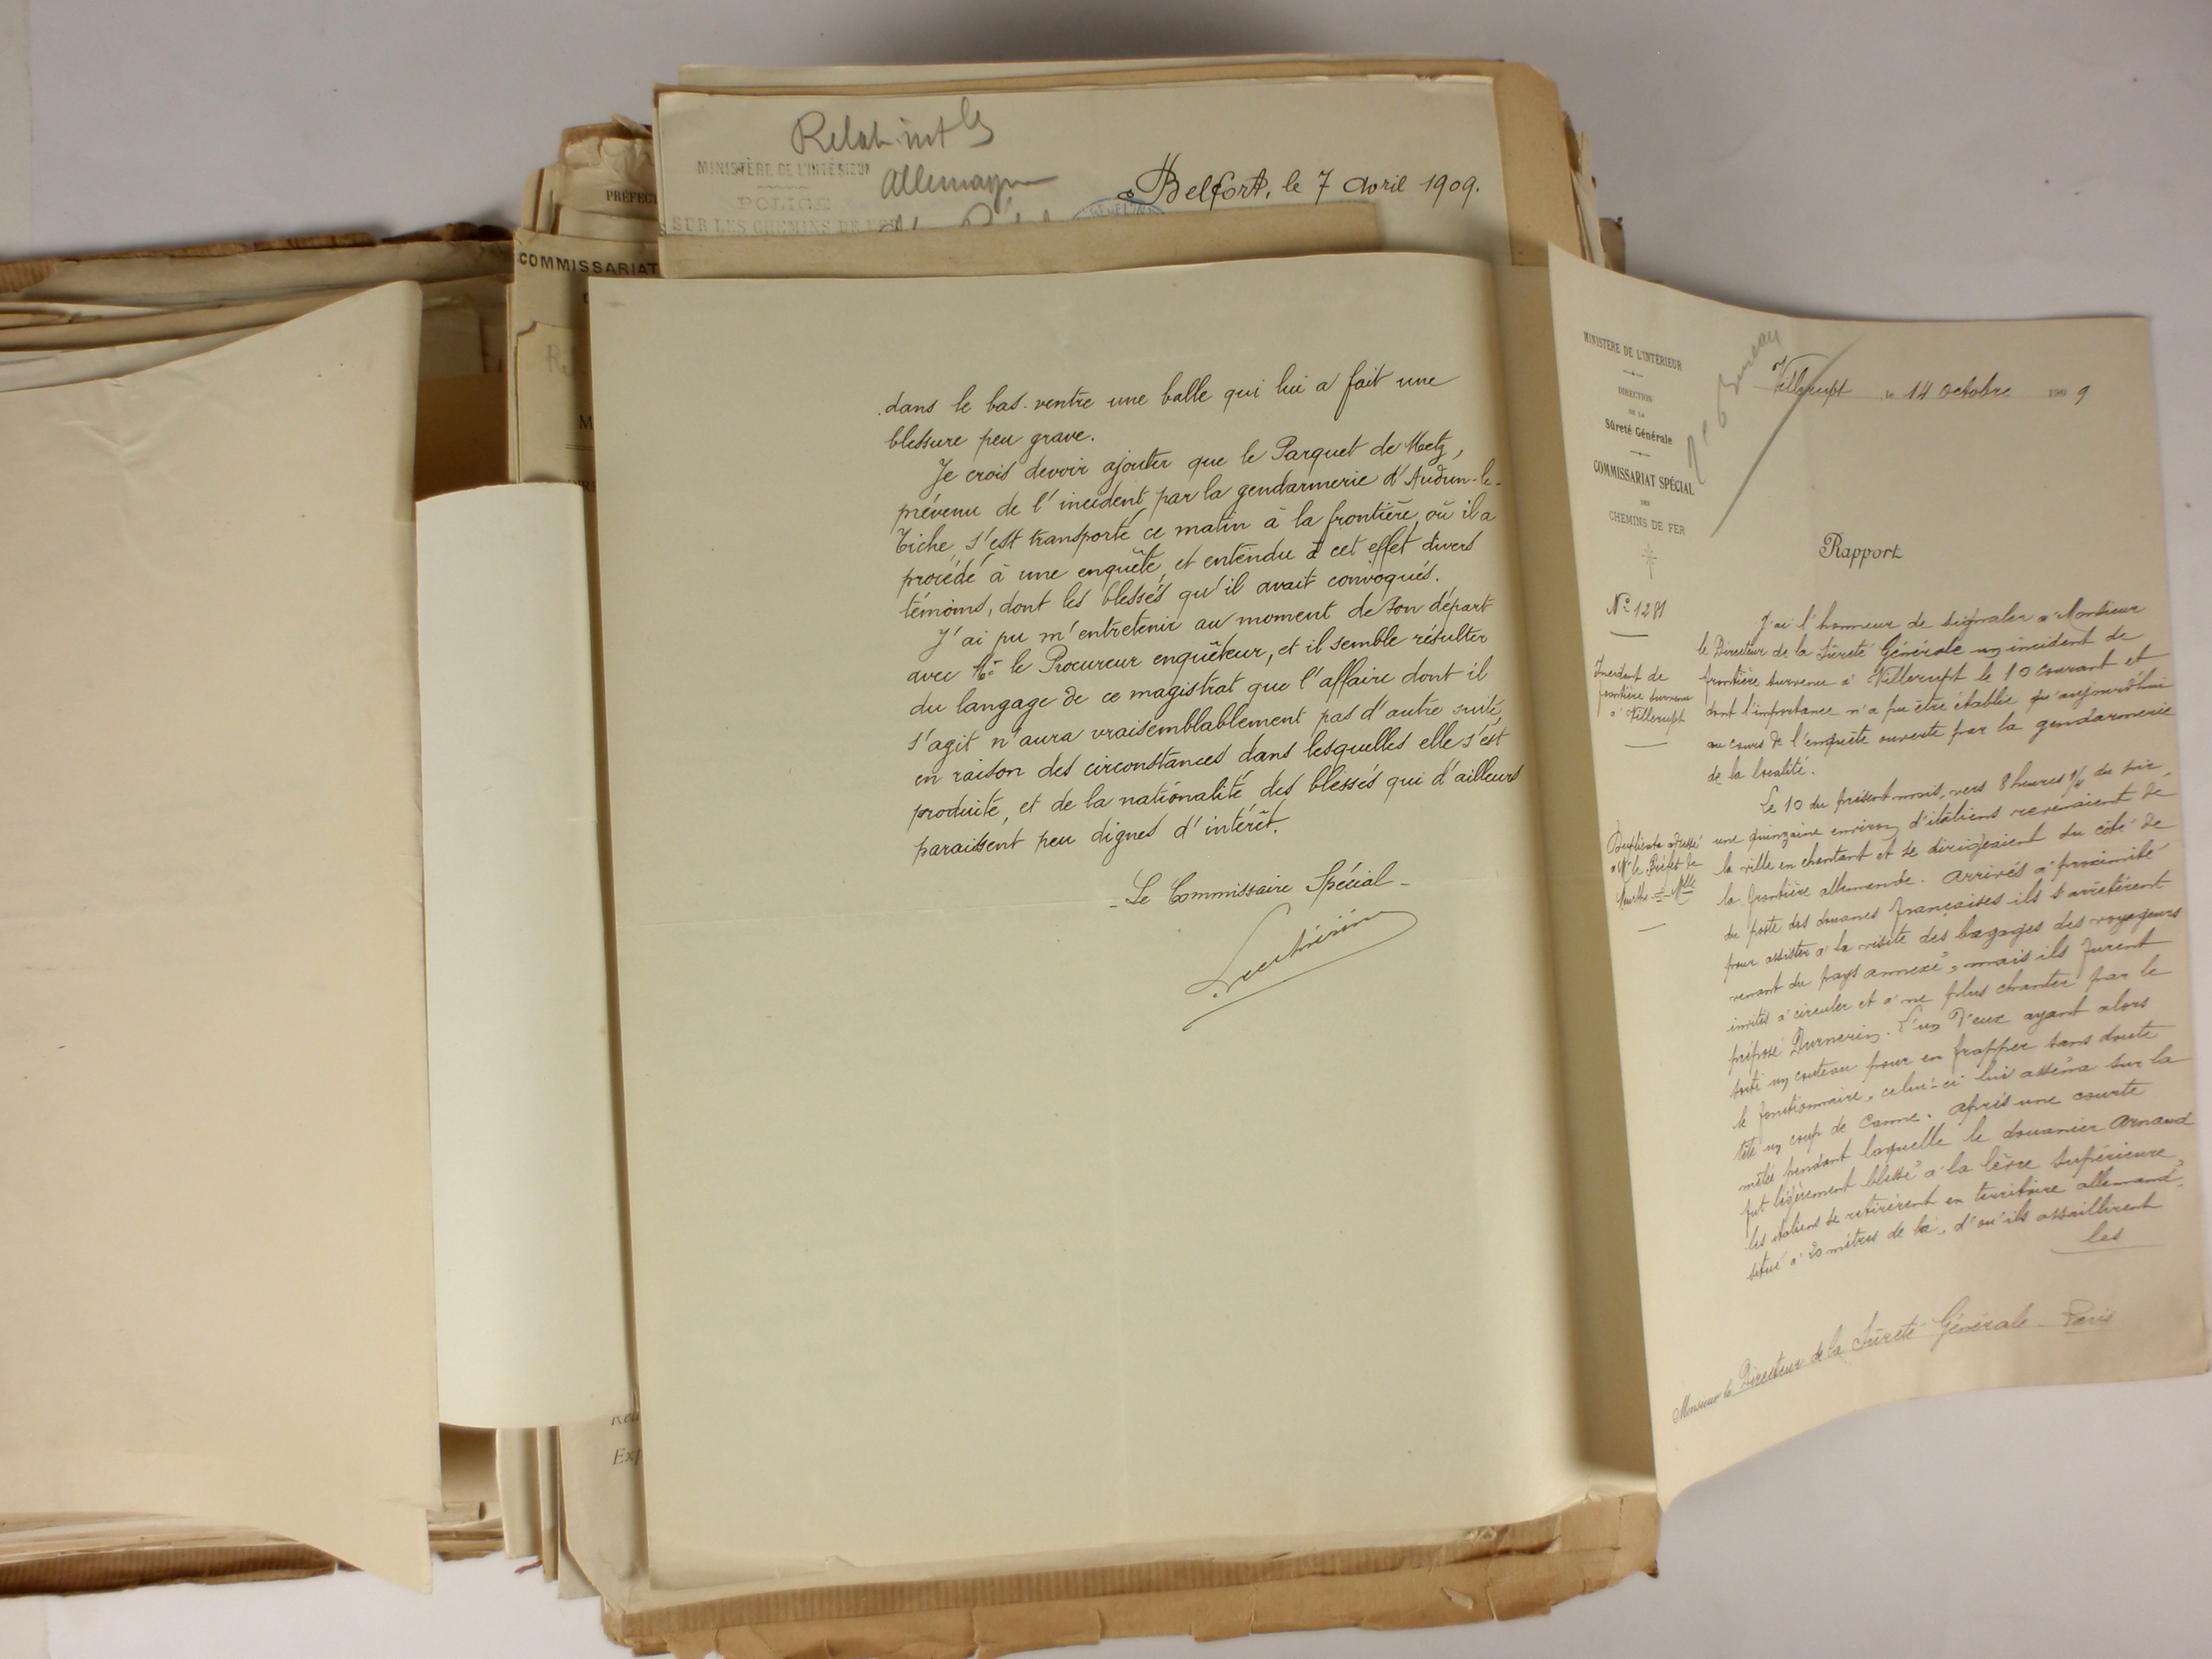 Relat. int les
MINISTÈRE DE L'INTÉRIEUR
Allemagne
POLICE
SUR LES CHEMINS DE FER
Belfort, le 7 Avril 1909.
PRÉFECT
COMMISSARIAT
dans le bas-ventre une balle qui lui a fait une
blessure peu grave.
Je crois devoir ajouter que le Parquet de Metz,
prévenu de l'incident par la gendarmerie d'Audun-le-
Tiche, s'est transporté ce matin à la frontière, où il a
procédé à une enquête, et entendu à cet effet divers
témoins, dont les blessés qu'il avait convoqués.
J'ai pu m'entretenir au moment de son départ
avec Mr. le Procureur enquêteur, et il semble résulter
du langage de ce magistrat que l'affaire dont il
s'agit n'aura vraisemblablement pas d'autre suite,
en raison des circonstances dans lesquelles elle s'est
produite, et de la nationalité des blessés qui d'ailleurs
paraissent peu dignes d'intérêt.
Le Commissaire Spécial
Exp
MINISTÈRE DE L'INTÉRIEUR
DIRECTION
DE LA
Sûreté Générale
COMMISSARIAT SPÉCIAL
DES
CHEMINS DE FER
Bureau
Villerupt, le 14 Octobre 1909
Rapport
N° 1281
Incident de
frontière survenu
à Villerupt
Duplicata adressé
à Mr le Préfet de
Meurthe-et-Mlle
J'ai l'honneur de signaler à Monsieur
le Directeur de la Sûreté Générale un incident de
frontière survenu à Villerupt le 10 courant et
dont l'importance n'a pu être établie qu'aujourd'hui
au cours de l'enquête ouverte par la gendarmerie
de la localité.
Le 10 du présent mois, vers 8 heures du soir,
une quinzaine environ d'italiens revenaient de
la ville en chantant et se dirigeaient du côté de
la frontière allemande. Arrivés à proximité
du poste des douanes françaises ils s'arrêtèrent
pour assister à la visite des bagages des voyageurs
venant du pays annexé, mais ils furent
invités à circuler et à ne plus chanter par le
préposé Durnerin. L'un d'eux ayant alors
sorti un couteau pour en frapper sans doute
le fonctionnaire, celui-ci lui asséna sur la
tête un coup de canne. Après une courte
mêlée pendant laquelle le douanier Arnaud
fut légèrement blessé à la lèvre supérieure,
les italiens se retirèrent en territoire allemand,
situé à 20 mètres de là, d'où ils assaillirent
les
Monsieur le Directeur de la Sûreté Générale - Paris